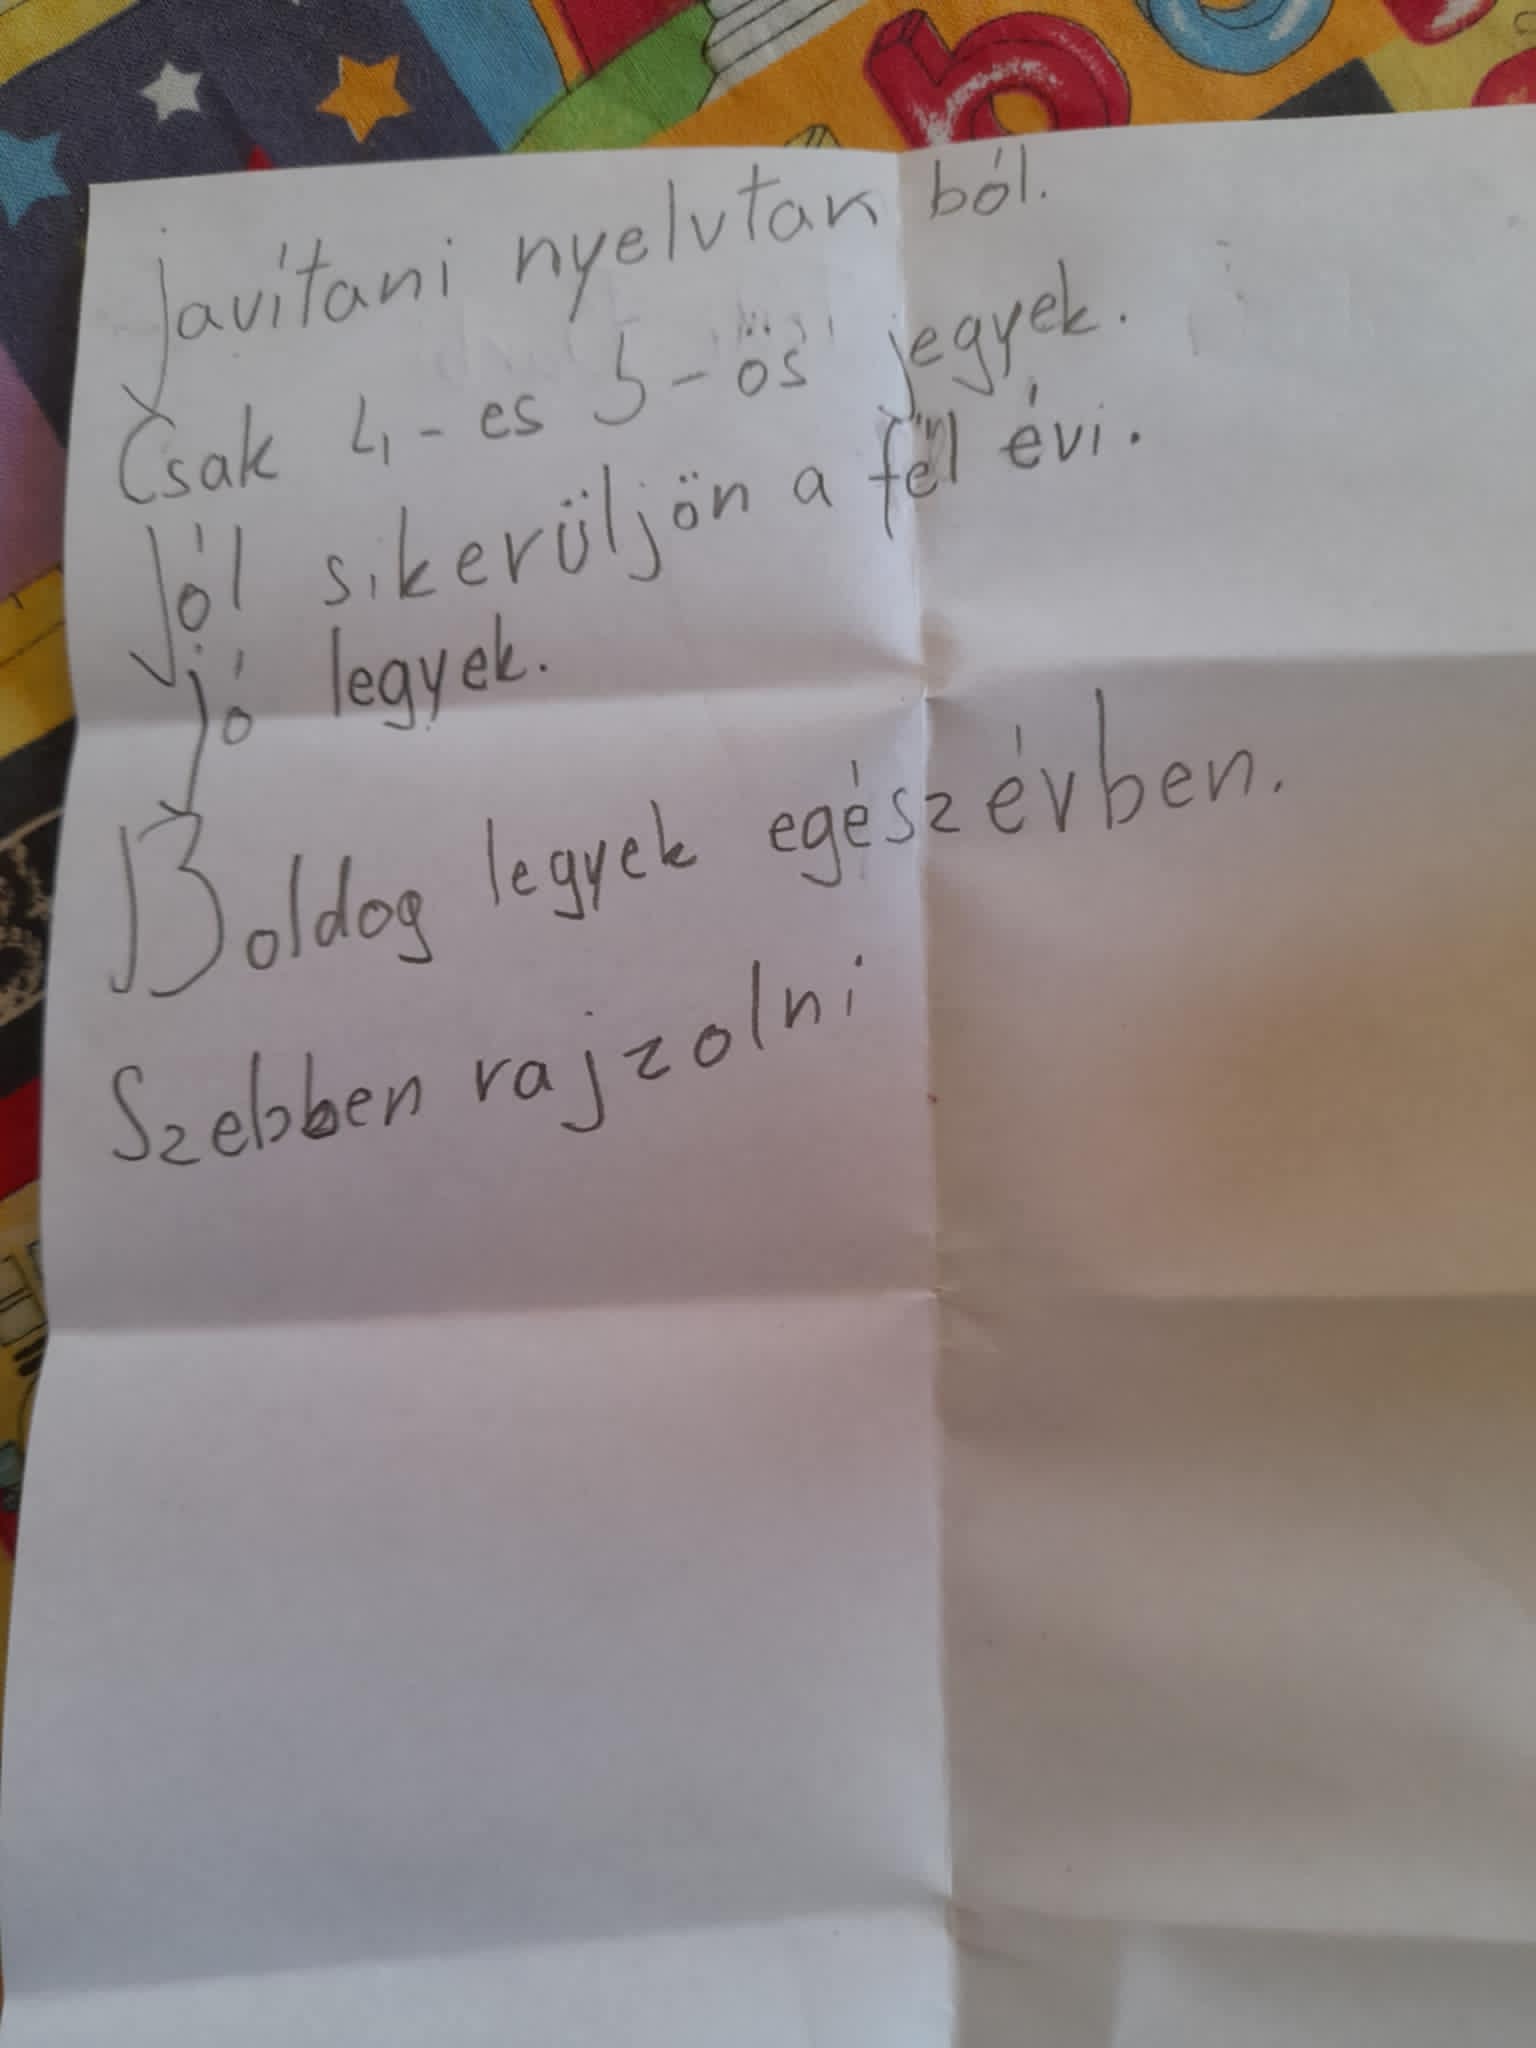 javítani nyelvtan ból.
Csak 4-es 5-ös jegyek.
Jól sikerüljön a fél évi.
jó legyek.
Boldog legyek egész évben.
Szebben rajzolni